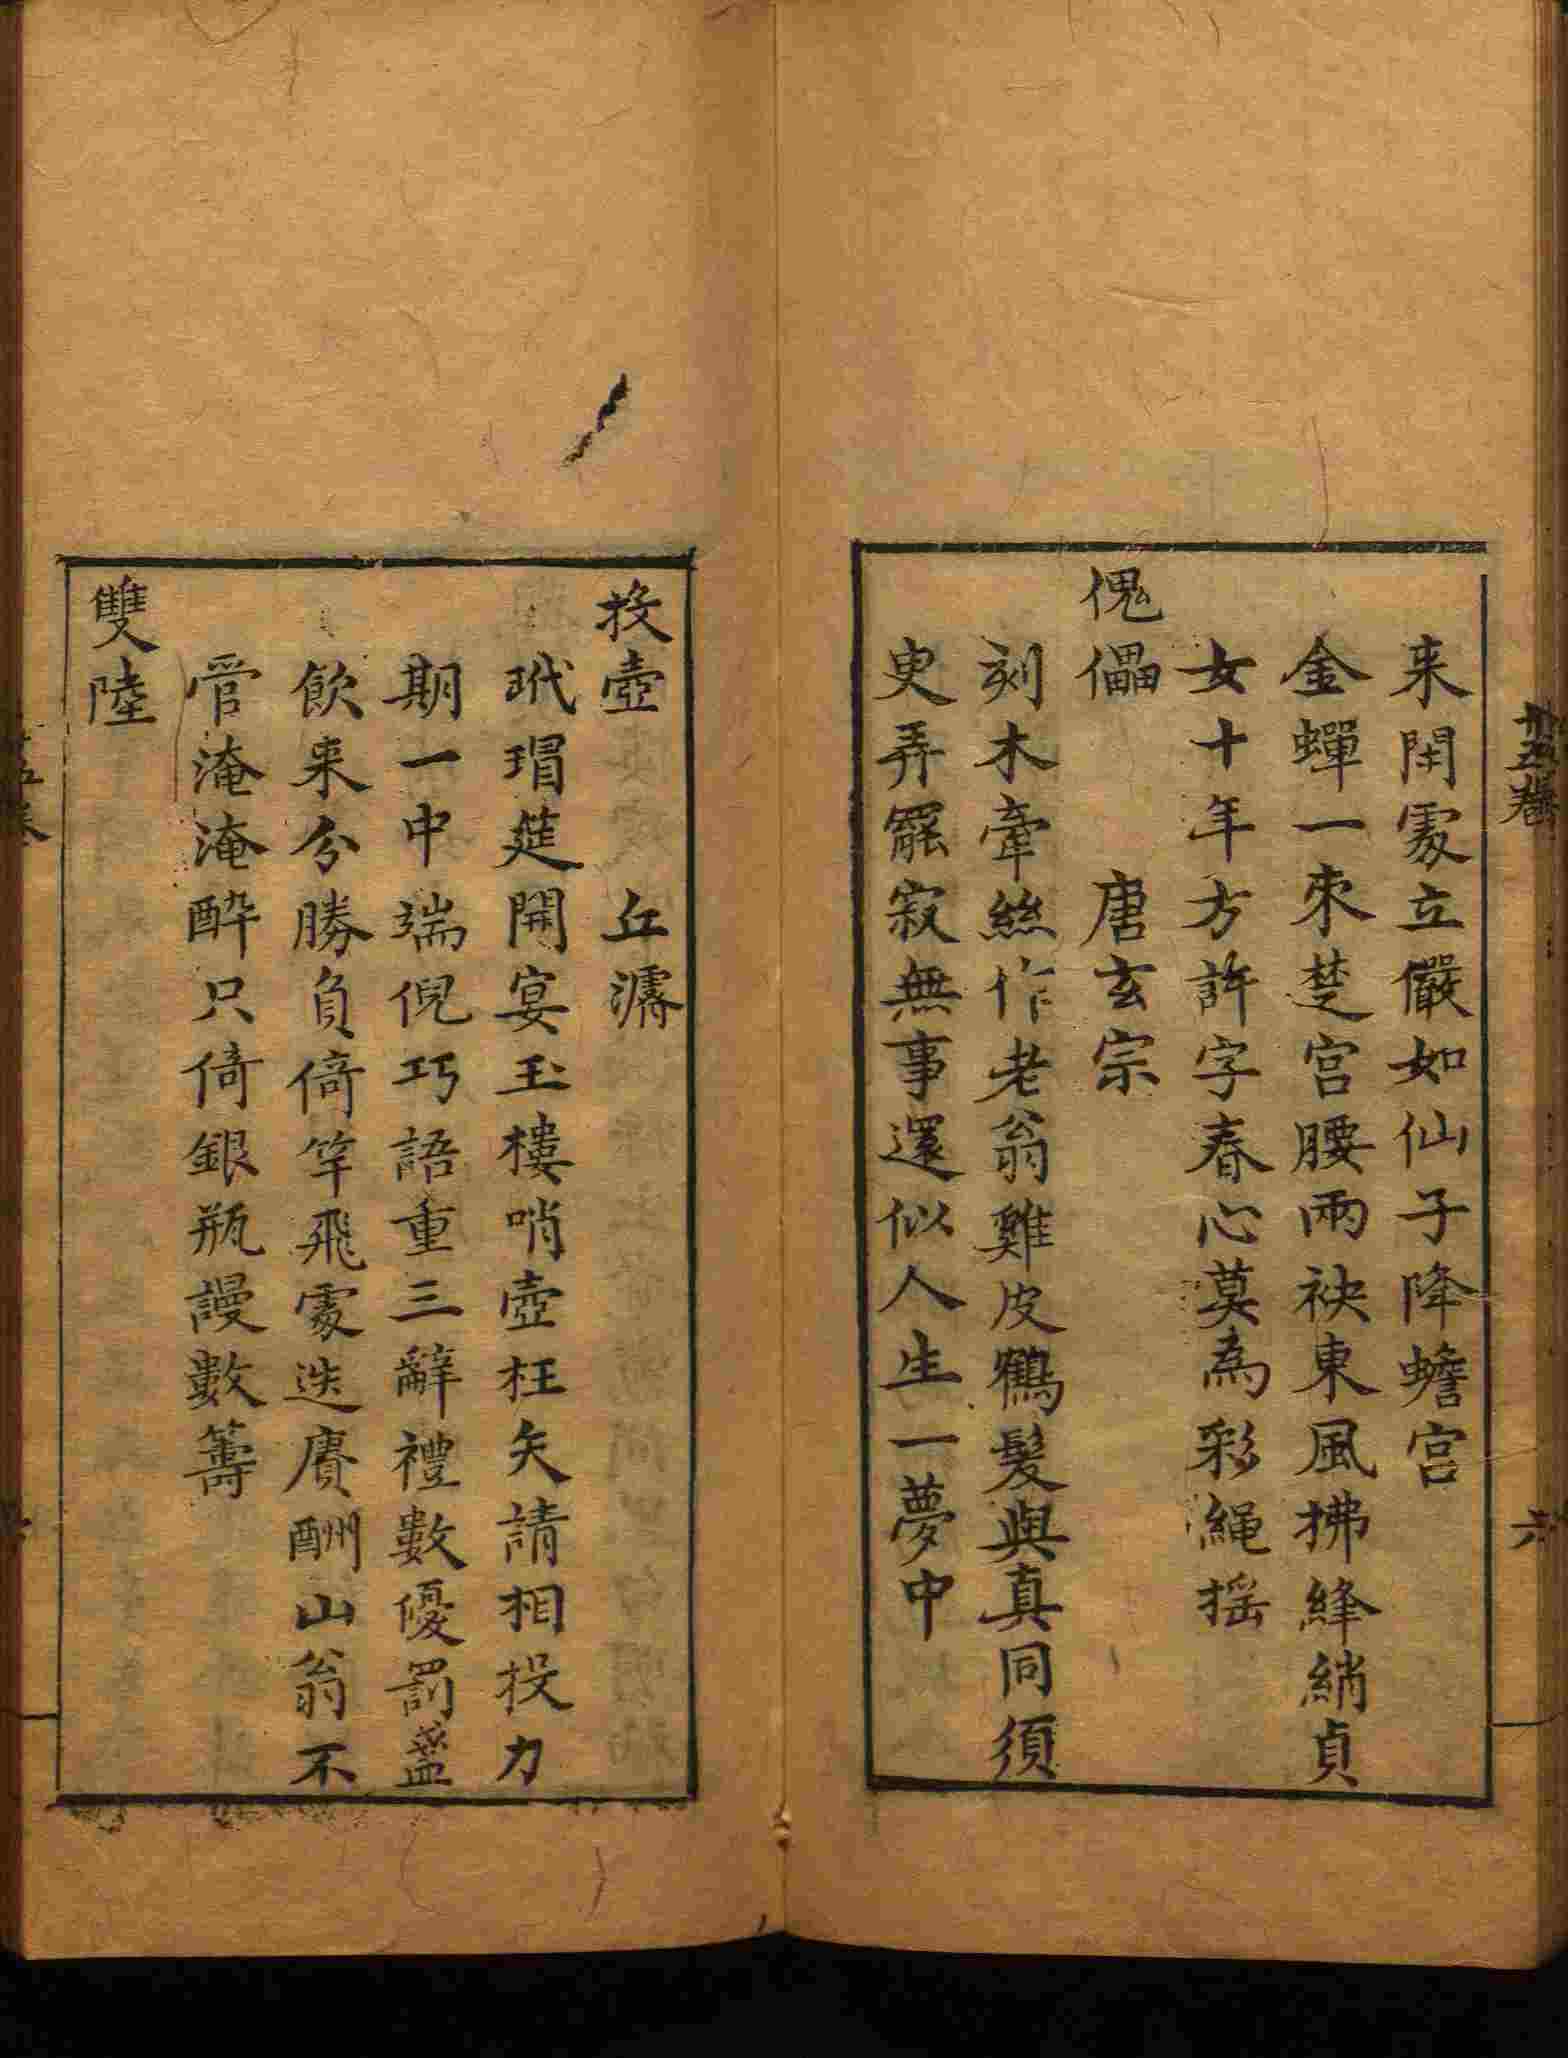 来閑處立儼如仙子降蟾宮
金蟬一朿楚宮腰兩袂東風拂絳綃貞
女十年方許字春心莫為彩繩摇
傀儡　唐玄宗
刻木牽絲作老翁雞皮鶴髮與真同須
臾弄罷寂無事還似人生一夢中
投壺　丘濬
玳瑁筵開宴玉樓哨壺枉矢請相投力
期一中端倪巧語重三辭禮數優罰盞
飲来分勝負倚竿飛處迭賡酬山翁不
管淹淹醉只倚銀瓶謾數籌
雙陸
卅五卷
六